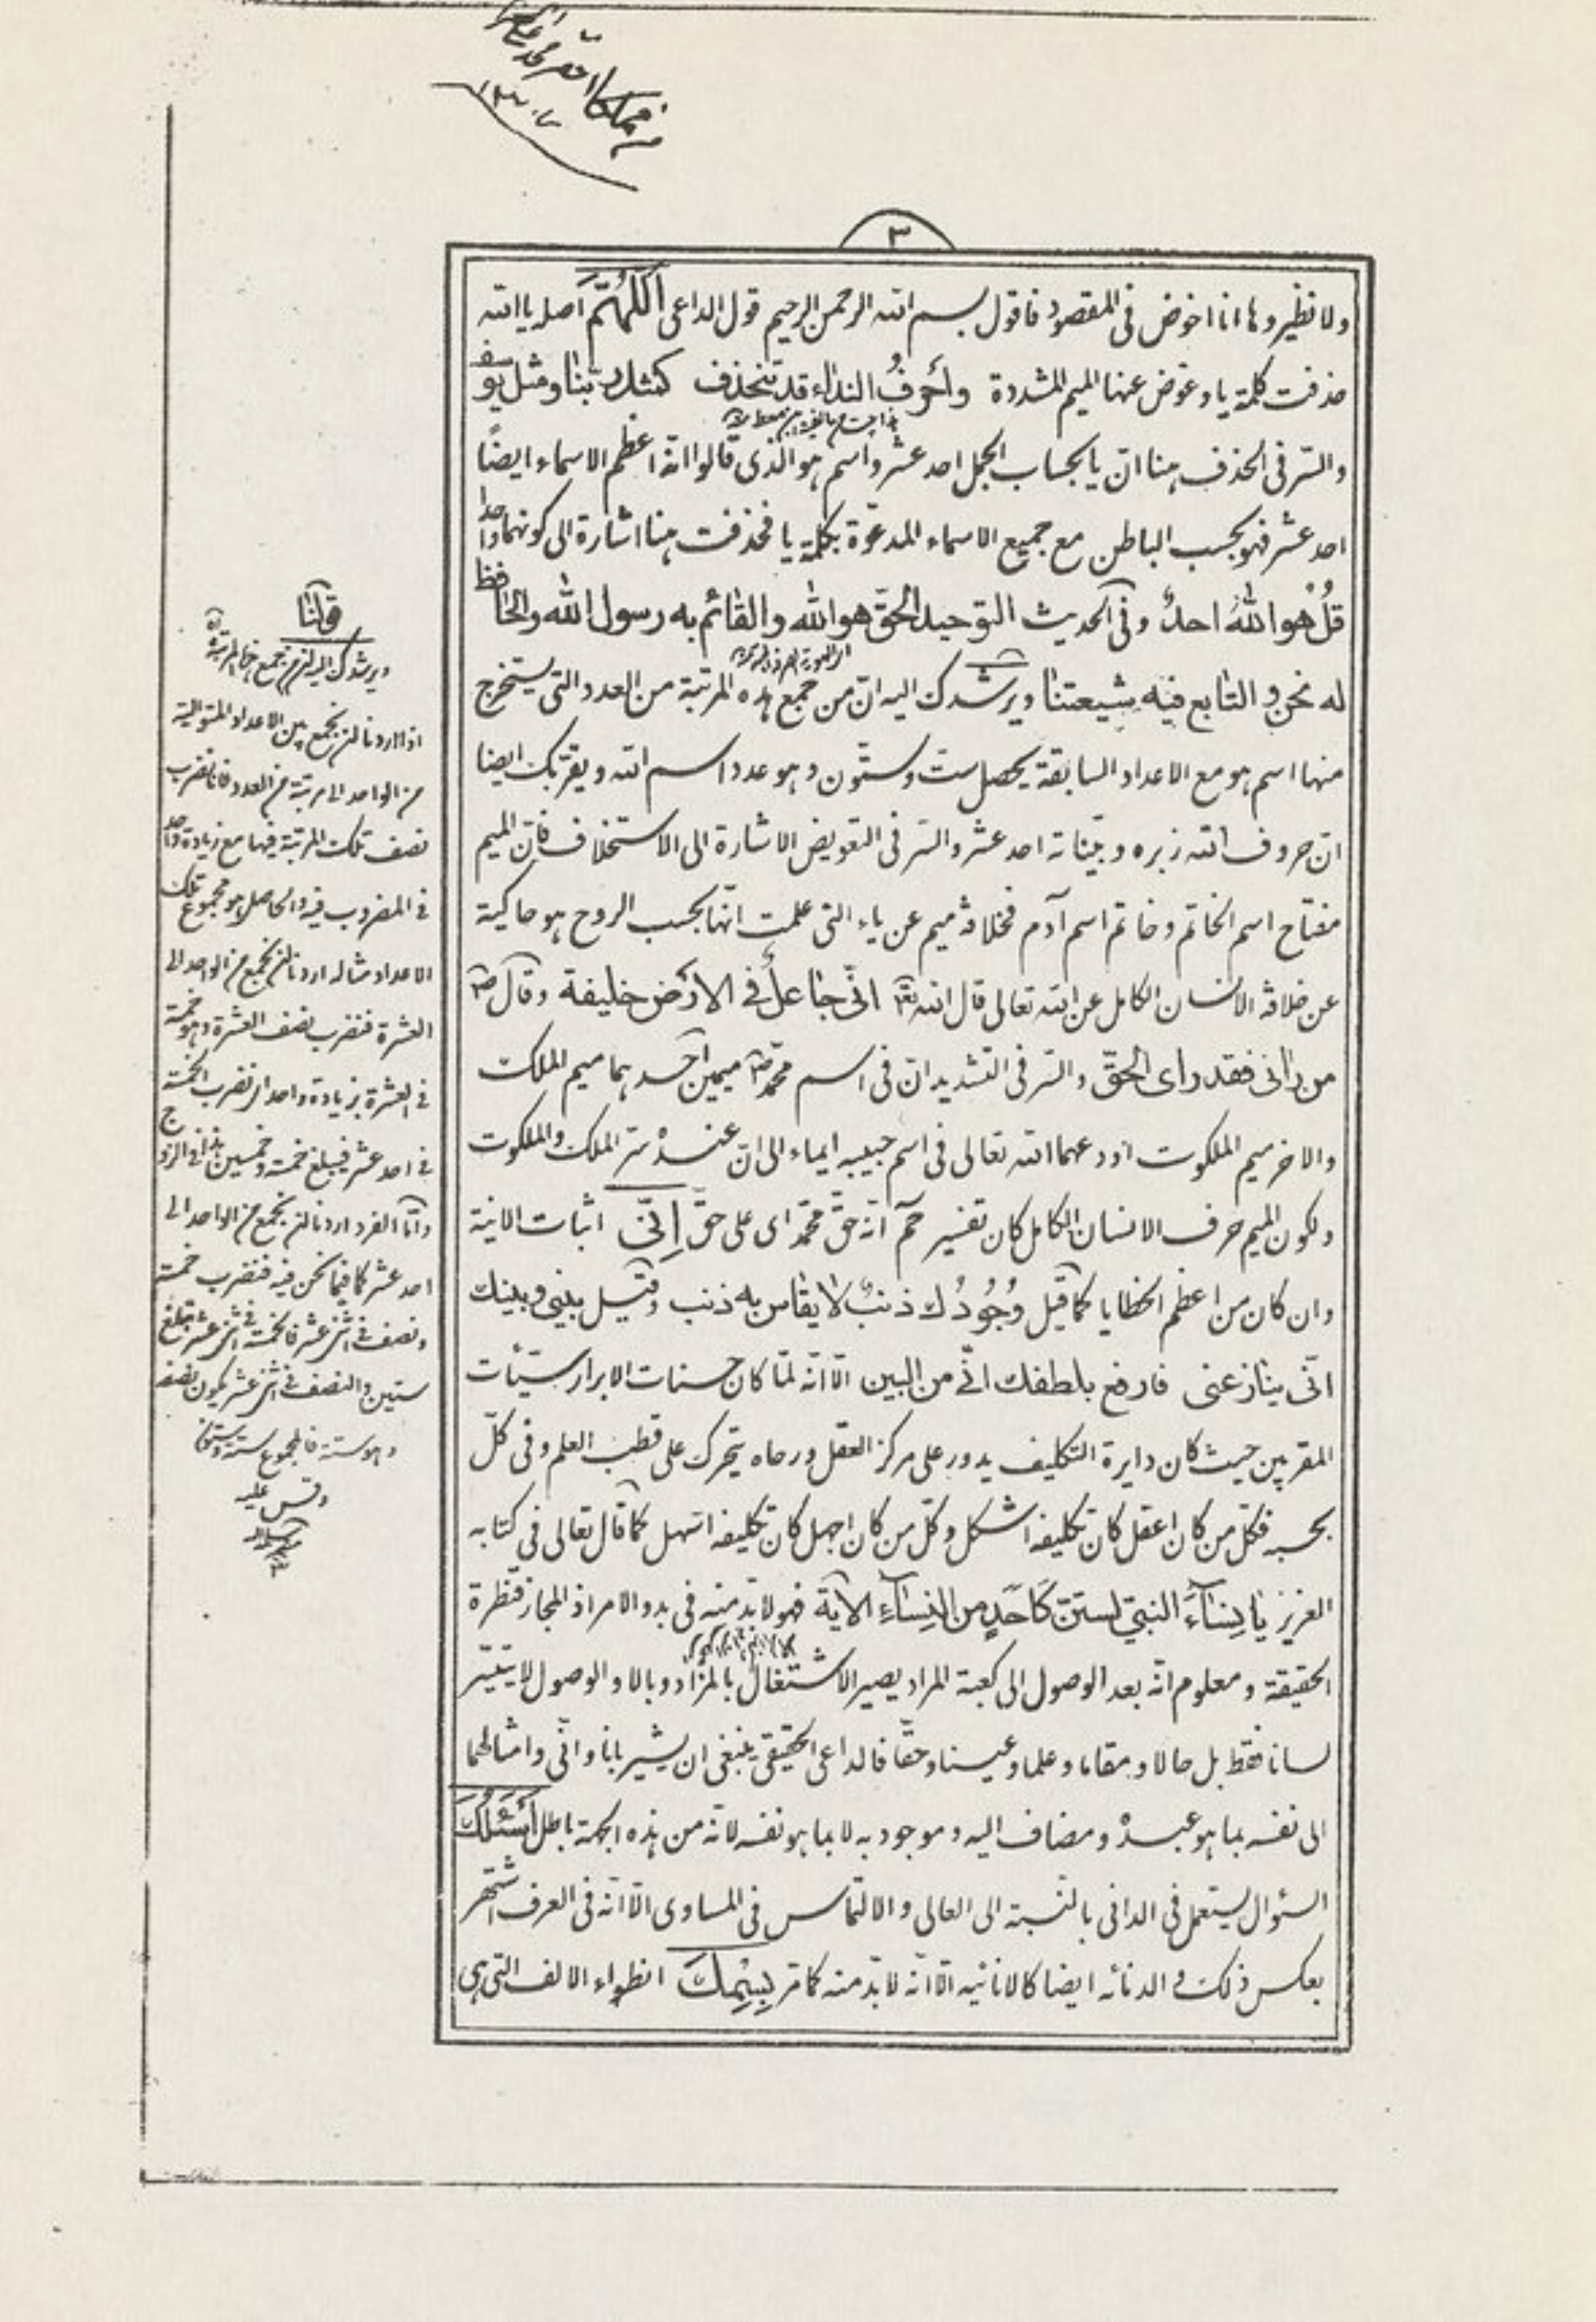 ٣
ولا نظير وها انا اخوض فى المقصود فاقول بسم الله الرحمن الرحيم قول الداعى اَللّهُمَّ اصله يا الله
حذفت كلمة يا وعوض عنها الميم المشددة وأحرفُ النداء قد تنحذف كمثل ربّنا ومثل يوسف
والسّر فى الحذف هنا انّ يا بحساب الجمل احد عشر واسم هو الذى قالوا انّه اعظم الاسماء ايضًا
احد عشر فهو بحسب الباطن مع جميع الاسماء المدعوّة بكلمة يا فحذفت هنا اشارة الى كونهما واحدا
قُلْ هو اللهُ احدٌ وفى الحديث التوحيد الحقّ هو الله والقائم به رسول الله والحافظ
له نحن والتابع فيه شيعتنا ويرشدك اليه انّ من جمع هذه المرتبة من العدد التى يستخرج
منها اسم هو مع الاعداد السابقة يحصل ست وستّون وهو عدد اسم الله ويقرّبك ايضا
انّ حروف الله زبره وبيّناته احد عشر والسّر فى التعويض الاشارة الى الاستخلاف فانّ الميم
مفتاح اسم الخاتم وخاتم اسم آدم فخلافة ميم عن ياء التى علمت انّها بحسب الروح هو حاكية
عن خلافة الانسان الكامل عن الله تعالى قال الله تعالى انّى جاعلٌ فى الارض خليفة وقال ص
من رانى فقد راى الحقّ والسّر فى التشديد ان فى اسم محمّد ص ميمين احدهما ميم الملك
والاخر ميم الملكوت اودعهما الله تعالى فى اسم حبيبه ايماء الى انّ عنده سرّ الملك والملكوت
ولكون الميم حرف الانسان الكامل كان تفسير حم انّه حقّ محمّد اى على حقّ اِنّى اثبات الانيّة
وان كان من اعظم الخطايا كما قيل وُجُودُك ذنبٌ لا يقاس به ذنب وقيل بينى وبينك
انّى ينازعنى فارفع بلطفك انّى من البين الّا انّه لمّا كان حسنات الابرار سيّئات
المقربين حيث كان دايرة التكليف يدور على مركز العقل ورحاه يتحرك على قطب العلم وفى كلّ
بحسبه فكلّ من كان اعقل كان تكليفه اشكل وكلّ من كان اجهل كان تكليفه اسهل كما قال تعالى فى كتابه
العزيز يا نِساءَ النبىّ لستنّ كَاَحَدٍ من النِساءِ الآية فهو لا بدّ منه فى بدو الامر اذ المجاز قنطرة
الحقيقة ومعلوم انّه بعد الوصول الى كعبة المراد يصير الاشتغال بالمزاد وبالا والوصول لا يتيسّر
لسانا فقط بل حالا ومقاما وعلما وعينا وحقّا فالداعى الحقيقى ينبغى ان يشير بانا وانّى وامثالهما
الى نفسه بما هو عبده ومضاف اليه وموجود به لا بما هو نفسه لانّه من هذه الجهة باطل اَسْئَلُكَ
السؤال يستعمل فى الدانى بالنّسبة الى العالى والالتماس فى المساوى الّا انّه فى العرف اشتهر
بعكس ذلك والدنائه ايضا كالانانيّه الّا انّه لا بدّ منه كما مرّ بِسْمِكَ انطواء الالف التى هى
قولنا
ويرشدك اليه انّ من جمع هذه المرتبة
اذا اردنا ان نجمع بين الاعداد المتوالية
من الواحد الى مرتبة من العدد فانا نضرب
نصف تلك المرتبة فيها مع زيادة واحد
فى المضروب فيه والحاصل هو مجموع تلك
الاعداد مثاله اردنا ان نجمع من الواحد الى
العشرة فنضرب نصف العشرة وهو خمسة
فى العشرة بزيادة واحد اى نضرب الخمسة
فى احد عشر فيبلغ خمسة وخمسين هذا فى الزوج
وامّا الفرد اردنا ان نجمع من الواحد الى
احد عشر كما فيما نحن فيه فنضرب خمسة
ونصف فى اثنى عشر فالخمسة فى اثنى عشر تبلغ
ستين والنصف فى اثنى عشر يكون نصفه
وهو ستة فالمجموع ستة وستون
وقس عليه